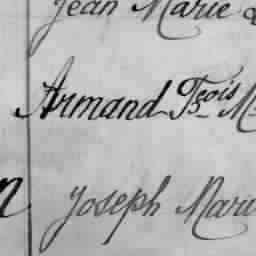 Jean Marie
Armand Fçois M
n Joseph Marie